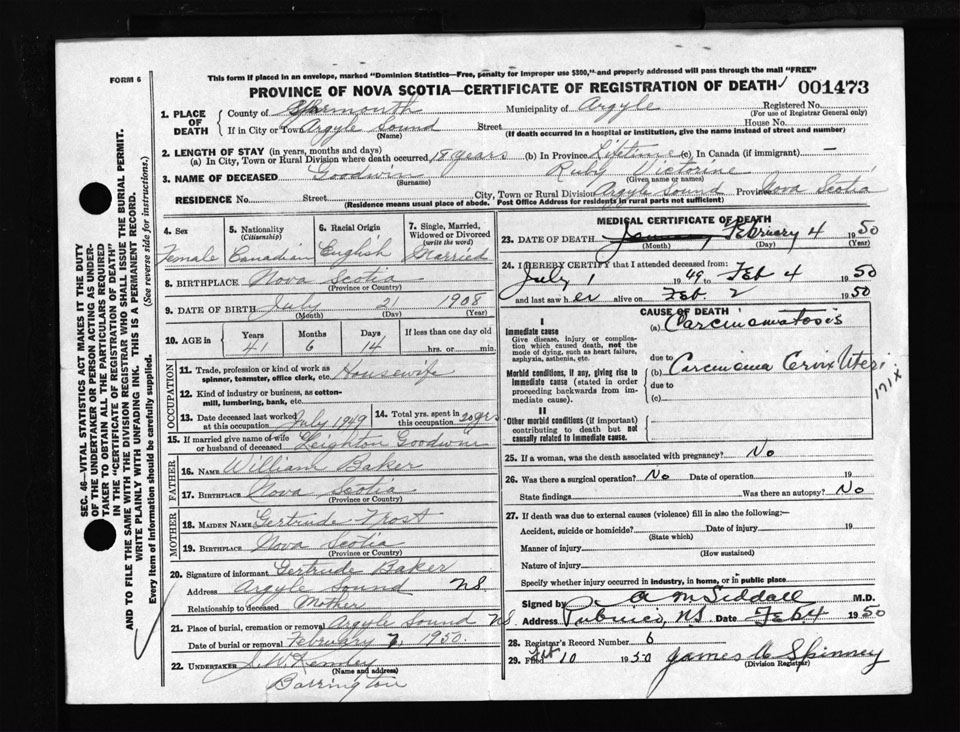 FORM 6
This form if placed in an envelope, marked "Dominion Statistics—Free, penalty for improper use $300," and properly addressed will pass through the mail "FREE"
PROVINCE OF NOVA SCOTIA—CERTIFICATE OF REGISTRATION OF DEATH 001473
1. PLACE OF DEATH
County of Yarmouth Municipality of Argyle Registered No.
(For use of Registrar General only)
If in City or Town Argyle Sound Street House No.
(Name) (If death occurred in a hospital or institution, give the name instead of street and number)
2. LENGTH OF STAY (in years, months and days)
(a) In City, Town or Rural Division where death occurred 18 years (b) In Province Lifetime (c) In Canada (if immigrant) —
3. NAME OF DECEASED Goodwin Ruby Victorine
(Surname) (Given name or names)
RESIDENCE No. Street City, Town or Rural Division Argyle Sound Province Nova Scotia
(Residence means usual place of abode. Post Office Address for residents in rural parts not sufficient)
4. Sex
Female
5. Nationality
(Citizenship)
Canadian
6. Racial Origin
English
7. Single, Married, Widowed or Divorced
(write the word)
Married
8. BIRTHPLACE Nova Scotia
(Province or Country)
9. DATE OF BIRTH July 21 1908
(Month) (Day) (Year)
10. AGE in
Years Months Days If less than one day old
41 6 14 hrs. or min.
OCCUPATION
11. Trade, profession or kind of work as spinner, teamster, office clerk, etc. Housewife
12. Kind of industry or business, as cotton-mill, lumbering, bank, etc.
13. Date deceased last worked at this occupation July 1949
14. Total yrs. spent in this occupation 20 yrs
15. If married give name of wife or husband of deceased Leighton Goodwin
FATHER
16. NAME William Baker
17. BIRTHPLACE Nova Scotia
(Province or Country)
MOTHER
18. MAIDEN NAME Gertrude Frost
19. BIRTHPLACE Nova Scotia
(Province or Country)
20. Signature of informant Gertrude Baker
Address Argyle Sound N.S.
Relationship to deceased Mother
21. Place of burial, cremation or removal Argyle Sound N.S.
Date of burial or removal February 7, 1950.
22. UNDERTAKER
(Name and address)
Barrington
MEDICAL CERTIFICATE OF DEATH
23. DATE OF DEATH January February 4 1950
(Month) (Day) (Year)
24. I HEREBY CERTIFY that I attended deceased from:
July 1 1949 to Feb 4 1950
and last saw her alive on Feb. 2 1950
CAUSE OF DEATH
I
Immediate cause
Give disease, injury or complication which caused death, not the mode of dying, such as heart failure, asphyxia, asthenia, etc.
(a) Carcinomatosis
due to
Morbid conditions, if any, giving rise to immediate cause (stated in order proceeding backwards from immediate cause).
(b) Carcinoma Cervix Uteri
due to
(c)
171X
II
Other morbid conditions (if important) contributing to death but not causally related to immediate cause.
25. If a woman, was the death associated with pregnancy? No
26. Was there a surgical operation? No Date of operation 19
State findings Was there an autopsy? No
27. If death was due to external causes (violence) fill in also the following:—
Accident, suicide or homicide? Date of injury 19
(State which)
Manner of injury
(How sustained)
Nature of injury
Specify whether injury occurred in industry, in home, or in public place
Signed by A M Siddall M.D.
Address Pubnico, N.S. Date Feb 4 1950
28. Registrar's Record Number 6
29. Filed Feb 10 1950 James A Spinney
(Division Registrar)
SEC. 46—VITAL STATISTICS ACT MAKES IT THE DUTY
OF THE UNDERTAKER OR PERSON ACTING AS UNDER-
TAKER TO OBTAIN ALL THE PARTICULARS REQUIRED
IN THE "CERTIFICATE OF REGISTRATION OF DEATH"
AND TO FILE THE SAME WITH THE DIVISION REGISTRAR WHO SHALL ISSUE THE BURIAL PERMIT.
WRITE PLAINLY WITH UNFADING INK. THIS IS A PERMANENT RECORD.
Every item of information should be carefully supplied. (See reverse side for instructions.)